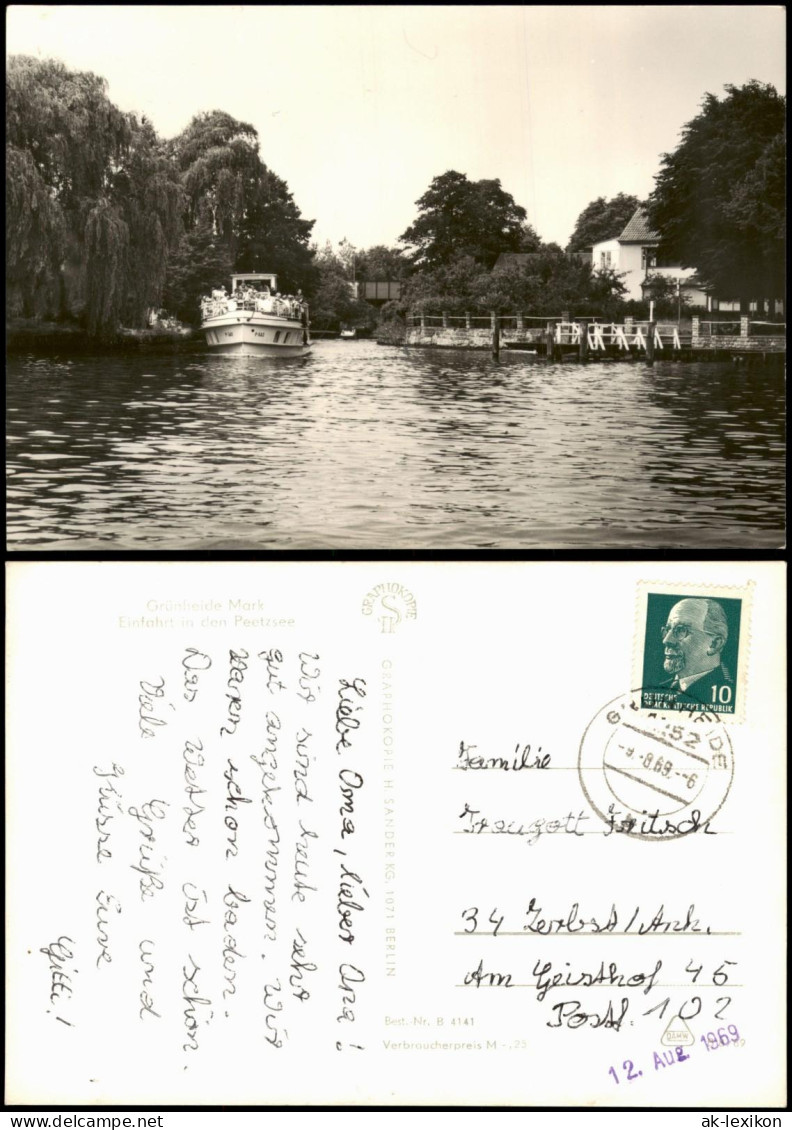 Grünheide Mark
Einfahrt in den Peetzsee
GRAPHOKOPIE
H S
Liebe Oma, lieber Opa!
Wir sind heute sehr
gut angekommen. Wir
waren schon baden.
Das Wetter ist schön.
Viele Grüße und
Küsse Eure
Gitti!
GRAPHOKOPIE H. SANDER KG, 1071 BERLIN
Best.-Nr. B 4141
Verbraucherpreis M -,25
10
DEUTSCHE
DEMOKRATISCHE REPUBLIK
1252
-9.-8.69.-6
Familie
Traugott Fritsch
34 Zerbst/Anh.
Am Geisthof 45
Postf. 102
12. Aug. 1969
ak-lexikon